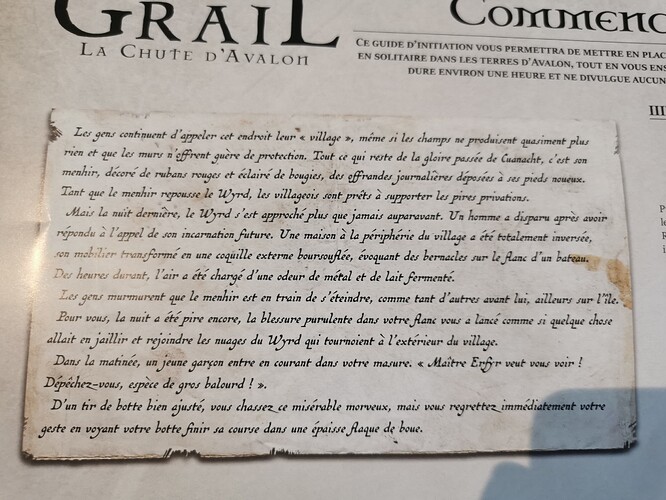 GRAIL
LA CHUTE D'AVALON
COMMENC
CE GUIDE D'INITIATION VOUS PERMETTRA DE METTRE EN PLAC
EN SOLITAIRE DANS LES TERRES D'AVALON, TOUT EN VOUS ENS
DURE ENVIRON UNE HEURE ET NE DIVULGUE AUCUN
III
Les gens continuent d'appeler cet endroit leur « village », même si les champs ne produisent quasiment plus
rien et que les murs n'offrent guère de protection. Tout ce qui reste de la gloire passée de Cuanacht, c'est son
menhir, décoré de rubans rouges et éclairé de bougies, des offrandes journalières déposées à ses pieds noueux.
Tant que le menhir repousse le Wyrd, les villageois sont prêts à supporter les pires privations.
Mais la nuit dernière, le Wyrd s'est approché plus que jamais auparavant. Un homme a disparu après avoir
répondu à l'appel de son incarnation future. Une maison à la périphérie du village a été totalement inversée,
son mobilier transformé en une coquille externe boursouflée, évoquant des bernacles sur le flanc d'un bateau.
Des heures durant, l'air a été chargé d'une odeur de métal et de lait fermenté.
Les gens murmurent que le menhir est en train de s'éteindre, comme tant d'autres avant lui, ailleurs sur l'île.
Pour vous, la nuit a été pire encore, la blessure purulente dans votre flanc vous a lancé comme si quelque chose
allait en jaillir et rejoindre les nuages du Wyrd qui tournoient à l'extérieur du village.
Dans la matinée, un jeune garçon entre en courant dans votre masure. « Maître Erfyr veut vous voir !
Dépêchez-vous, espèce de gros balourd ! ».
D'un tir de botte bien ajusté, vous chassez ce misérable morveux, mais vous regrettez immédiatement votre
geste en voyant votre botte finir sa course dans une épaisse flaque de boue.